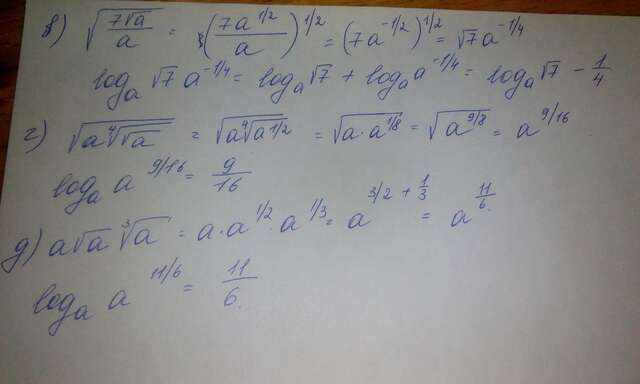 в) √(7√a/a) = (7a^1/2/a)^1/2 = (7a^-1/2)^1/2 = √7a^-1/4
log_a √7 a^-1/4 = log_a √7 + log_a a^-1/4 = log_a √7 - 1/4
г) √(a ∜(√a)) = √(a ∜(a^1/2)) = √(a·a^1/8) = √(a^9/8) = a^9/16
log_a a^9/16 = 9/16
д) a√a ∛a = a·a^1/2·a^1/3 = a^3/2+1/3 = a^11/6.
log_a a^11/6 = 11/6.